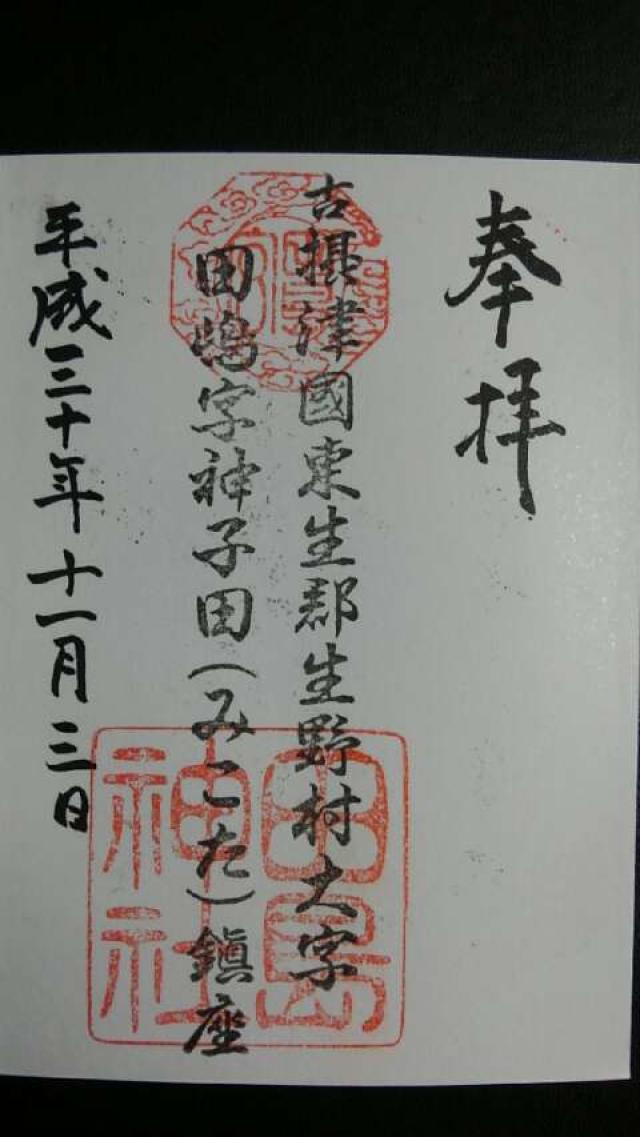 奉拝
古摂津國東生郡生野村大字
田嶋字神子田(みこた)鎮座
平成三十年十一月三日
田島
神社